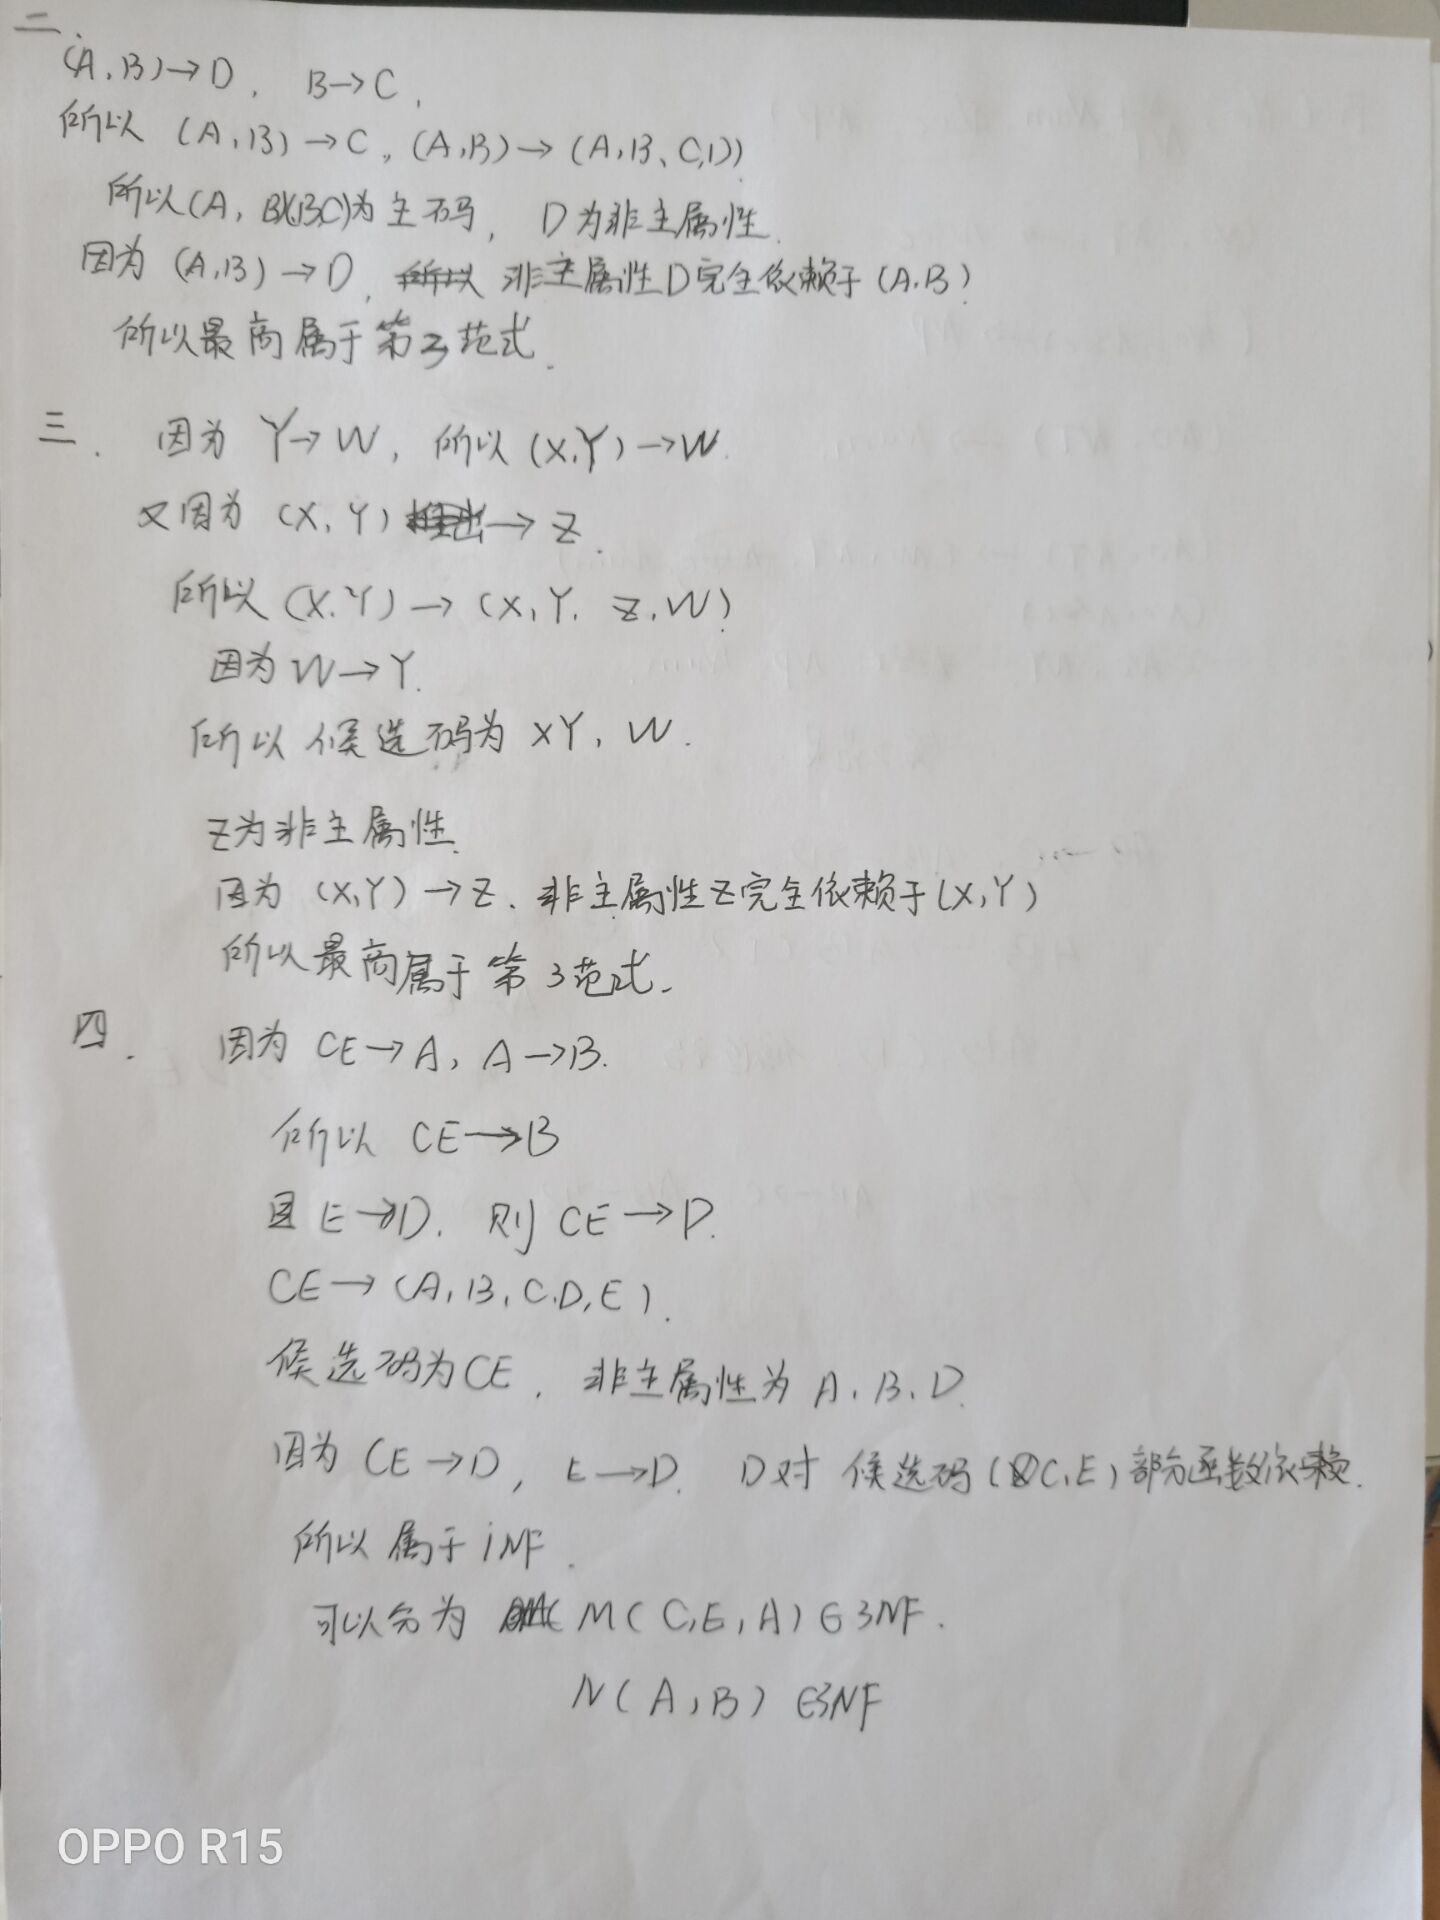 二、
(A,B)→D, B→C,
所以 (A,B)→C, (A,B)→(A,B、C,D)
所以(A, B)(B,C)为主码, D为非主属性.
因为 (A,B)→D, 所以 非主属性D完全依赖于(A.B)
所以最高属于第3范式.
三. 因为 Y→W, 所以 (X,Y)→W.
又因为 (X,Y) 推出→Z.
所以 (X.Y)→(X,Y. Z.W)
因为W→Y.
所以候选码为 XY, W.
Z为非主属性.
因为 (X,Y)→Z. 非主属性Z完全依赖于(X,Y)
所以最高属于第3范式.
四. 因为 CE→A, A→B.
所以 CE→B
且 E→D. 则 CE→D.
CE→(A,B,C.D,E).
候选码为CE, 非主属性为 A、B、D.
因为 CE→D, E→D. D对 候选码(C,E)部分函数依赖.
所以属于1NF.
可以分为 M(C,E,A)∈3NF.
N(A,B)∈3NF
OPPO R15